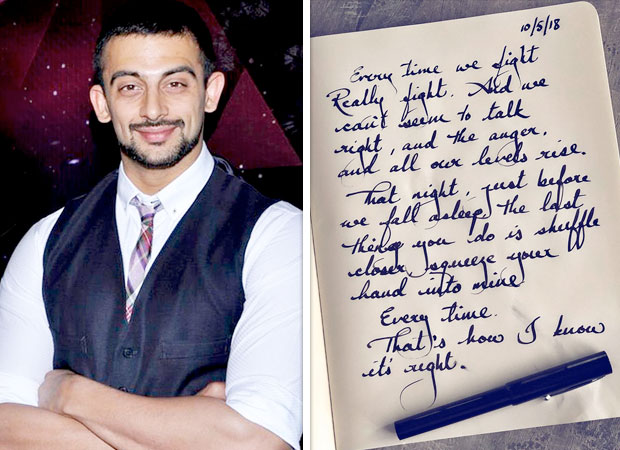 10/5/18
Every time we fight
Really fight. And we
can't seem to talk
right, and the anger,
and all our levels rise.
That night, just before
we fall asleep, the last
thing you do is shuffle
closer, squeeze your
hand into mine
Every time.
That's how I know
it's right.